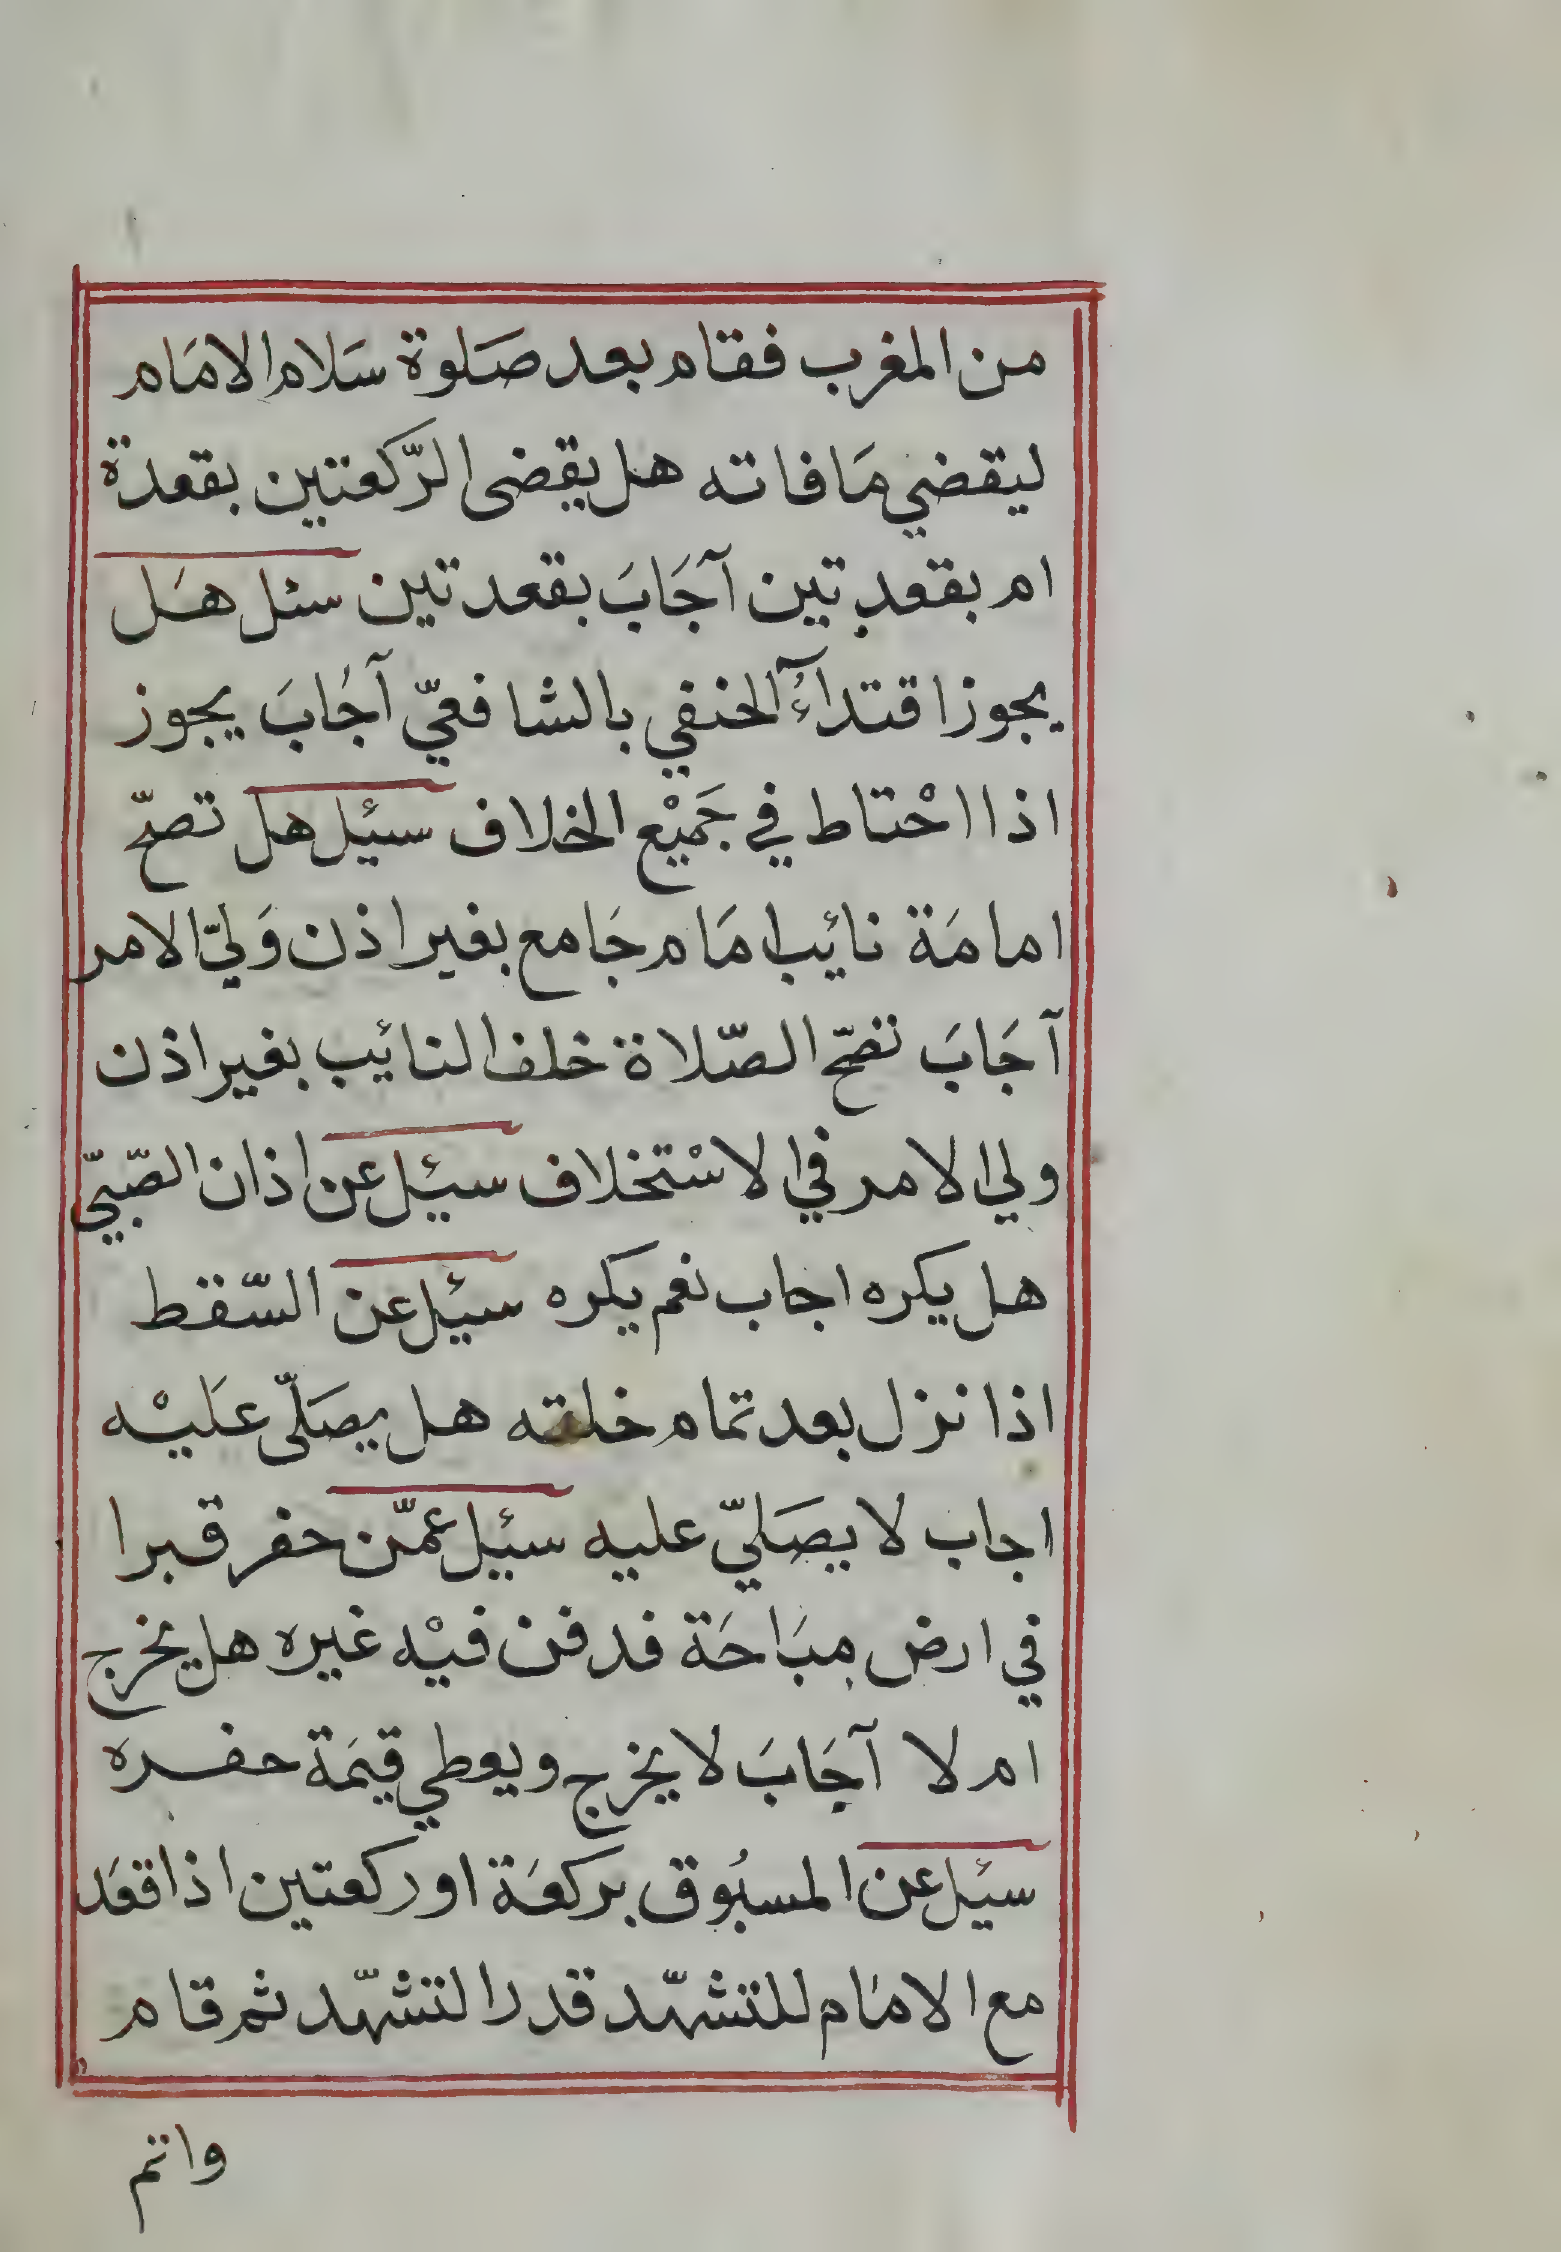 من المغرب فقام بعد صَلوة سَلام الامَام
ليقضي مَا فاته هل يقضى الرّكعتين بقعدة
ام بقعدتين آجَابَ بقعدتين سئل هَل
يجوز اقتدآءُ الحنفي بالشافعيّ آجَابَ يجوز
اذا احْتاط في جَميْع الخلاف سئل هل تصحّ
امامَة نائيب امَام جَامع بغير اذن وَليّ الامر
آجَابَ تصحّ الصّلاة خلف النائيب بغير اذن
ولي الامر في الاسْتخلاف سئل عن اذان الصّبيّ
هل يكره اجاب نعم يكره سئل عن السّقط
اذا نزل بعد تمام خلقته هل يصَلّى عَليْه
اجاب لا يصَليّ عليه سئل عمّن حفر قبرا
في ارض مبَاحَة فدفن فيْه غيره هل يخرج
ام لا آجَابَ لا يخرج ويعطي قيمَة حفره
سئل عن المسبُوق بركعَة او ركعتين اذا قعَد
مع الامَام للتشهّد قدر التشهّد ثم قام
واتم